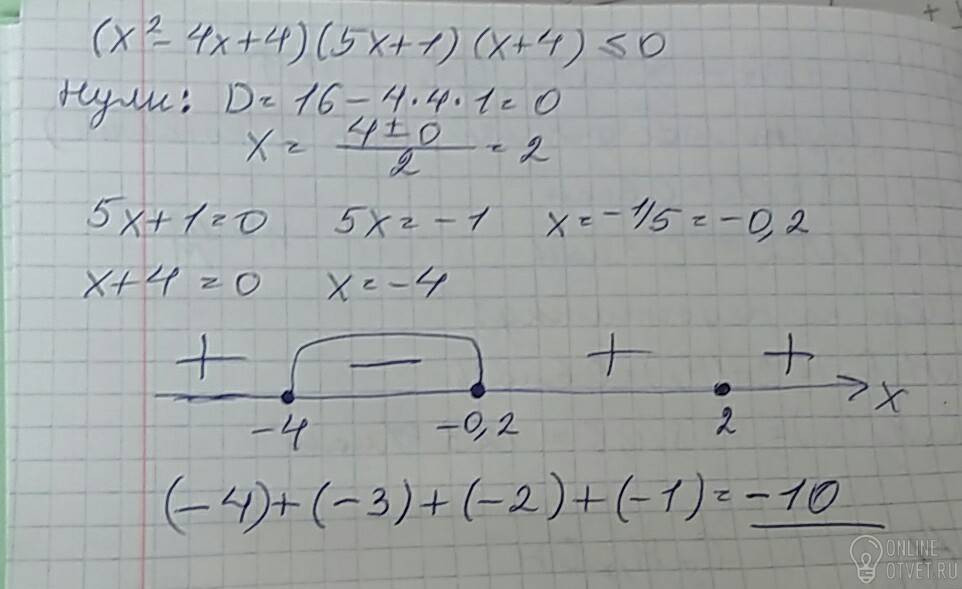 (x²-4x+4)(5x+1)(x+4) ≤ 0
Нули: D=16-4·4·1=0
x = (4±0)/2 = 2
5x+1=0 5x=-1 x=-1/5=-0,2
x+4=0 x=-4
+ − + +
-4 -0,2 2 x
(-4)+(-3)+(-2)+(-1)=-10
ONLINE
OTVET.RU